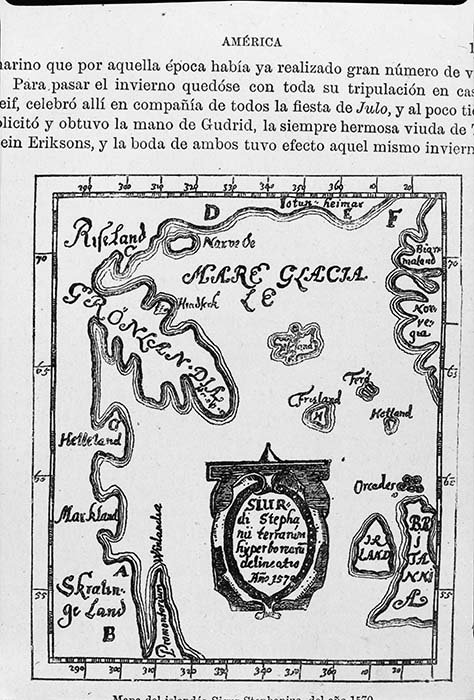 AMÉRICA
marino que por aquella época había ya realizado gran número de v
Para pasar el invierno quedóse con toda su tripulación en cas
eif, celebró allí en compañía de todos la fiesta de Julo, y al poco tie
olicitó y obtuvo la mano de Gudrid, la siempre hermosa viuda de T
ein Eriksons, y la boda de ambos tuvo efecto aquel mismo inviern
290 300 310 320 330 340 350 360 10 20
D Iotun-heimar E F
Riseland
C
Narve
de
Biar
maland
70
70
MARE GLACIA
LE
GRÖNLAN
Nor
ve
gia
65
65
Frisland
H
Hetland
Helleland
G
60
60
Orcades
Markland
SIUR-
di Stepha
nii terrarum
hyperborearu
delineatio
Año 1570
IR
LAND
BRI
TANNI
A
A
Skralin-
ge Land
B
Promontorium
Winlandiæ
55
55
290 300 310 320 330 340 350 360 10 20
Mapa del islandés Sigur Stephanius, del año 1570